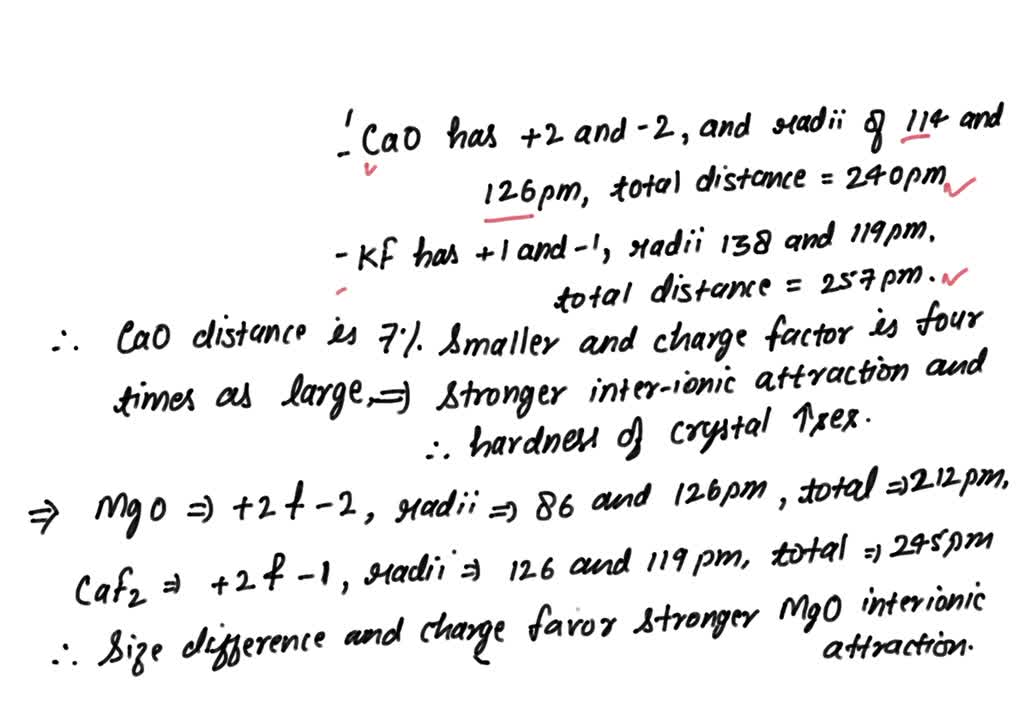 - CaO has +2 and -2, and radii of 114 and
126pm, total distance = 240pm
- KF has +1 and -1, radii 138 and 119pm.
total distance = 257pm.
∴ CaO distance is 7% smaller and charge factor is four
times as large, ⇒ stronger inter-ionic attraction and
∴ hardness of crystal ↑ses.
⇒ MgO ⇒ +2 & -2, radii ⇒ 86 and 126pm, total ⇒ 212pm.
CaF2 ⇒ +2 & -1, radii ⇒ 126 and 119 pm, total ⇒ 245pm
∴ Size difference and charge favor stronger MgO interionic
attraction.